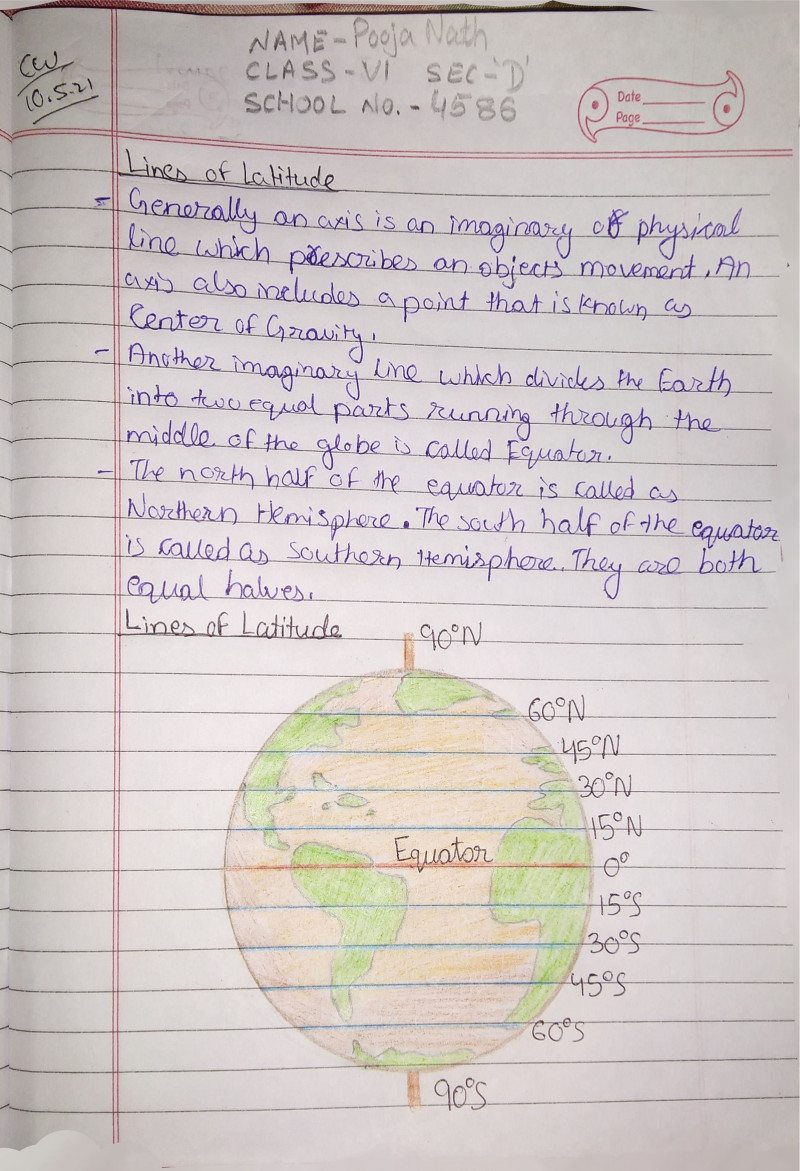 CW
10.5.21
NAME - Pooja Nath
CLASS - VI SEC - 'D'
SCHOOL No. - 4586
Date
Page
Lines of Latitude
- Generally an axis is an imaginary of physical
line which prescribes an objects movement. An
axis also includes a point that is known as
Center of Gravity.
- Another imaginary line which divides the Earth
into two equal parts running through the
middle of the globe is called Equator.
- The north half of the equator is called as
Northern Hemisphere. The south half of the equator
is called as Southern Hemisphere. They are both
equal halves.
Lines of Latitude
90°N
60°N
45°N
30°N
15°N
Equator
0°
15°S
30°S
45°S
60°S
90°S